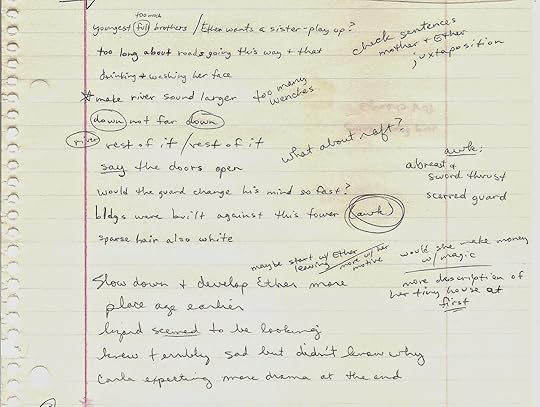 too much
youngest (full) brothers / Ether wants a sister-play up?
too long about roads going this way + that
drinking + washing her face
check sentences
mother + Ether
juxtaposition
* make river sound larger
too many
wenches
down not far down
river rest of it / rest of it
what about raft?
say the doors open
awk:
abreast +
sword thrust
would the guard change his mind so fast?
scarred guard
bldgs were built against this tower (awk)
sparse hair also white
maybe start w/ Ether
leaving
more w/ her
motive
would she make money
w/ magic
Slow down + develop Ether more
more description of
her tiny house at
first
place age earlier
seemed to be looking
knew terribly sad but didn't know why
Carla expecting more drama at the end